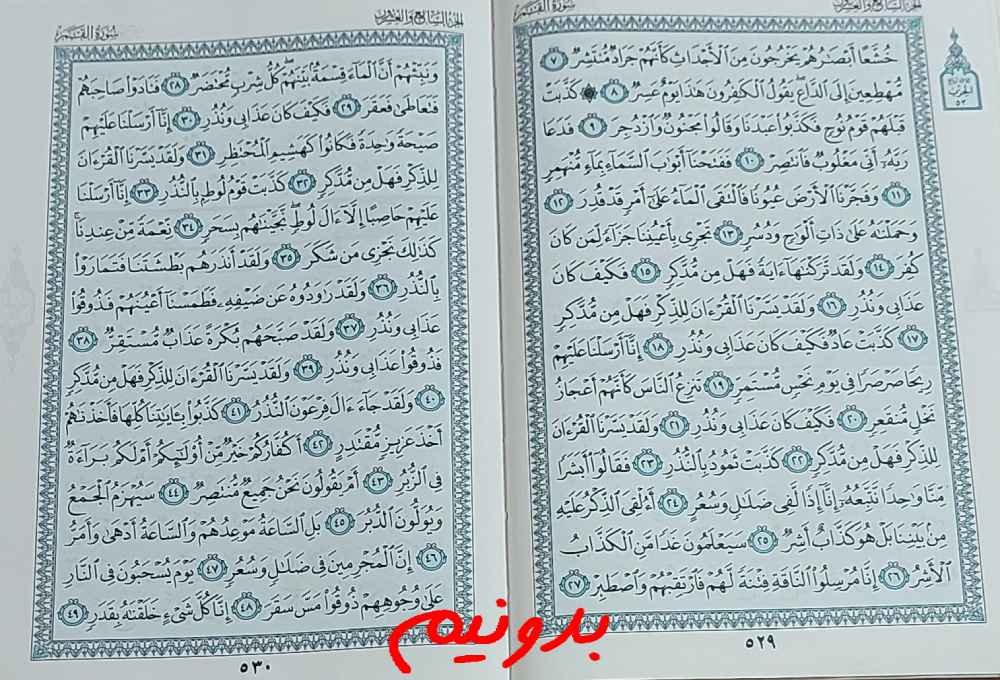 الجزء السابع والعشرون سورة القمر
الحزب
٥٣
خُشَّعًا أَبْصَٰرُهُمْ يَخْرُجُونَ مِنَ ٱلْأَجْدَاثِ كَأَنَّهُمْ جَرَادٌ مُّنتَشِرٌ ٧
مُّهْطِعِينَ إِلَى ٱلدَّاعِ يَقُولُ ٱلْكَٰفِرُونَ هَٰذَا يَوْمٌ عَسِرٌ ٨ ۞ كَذَّبَتْ
قَبْلَهُمْ قَوْمُ نُوحٍ فَكَذَّبُوا۟ عَبْدَنَا وَقَالُوا۟ مَجْنُونٌ وَٱزْدُجِرَ ٩ فَدَعَا
رَبَّهُۥٓ أَنِّى مَغْلُوبٌ فَٱنتَصِرْ ١٠ فَفَتَحْنَآ أَبْوَٰبَ ٱلسَّمَآءِ بِمَآءٍ مُّنْهَمِرٍ
١١ وَفَجَّرْنَا ٱلْأَرْضَ عُيُونًا فَٱلْتَقَى ٱلْمَآءُ عَلَىٰٓ أَمْرٍ قَدْ قُدِرَ ١٢
وَحَمَلْنَٰهُ عَلَىٰ ذَاتِ أَلْوَٰحٍ وَدُسُرٍ ١٣ تَجْرِى بِأَعْيُنِنَا جَزَآءً لِّمَن كَانَ
كُفِرَ ١٤ وَلَقَد تَّرَكْنَٰهَآ ءَايَةً فَهَلْ مِن مُّدَّكِرٍ ١٥ فَكَيْفَ كَانَ
عَذَابِى وَنُذُرِ ١٦ وَلَقَدْ يَسَّرْنَا ٱلْقُرْءَانَ لِلذِّكْرِ فَهَلْ مِن مُّدَّكِرٍ
١٧ كَذَّبَتْ عَادٌ فَكَيْفَ كَانَ عَذَابِى وَنُذُرِ ١٨ إِنَّآ أَرْسَلْنَا عَلَيْهِمْ
رِيحًا صَرْصَرًا فِى يَوْمِ نَحْسٍ مُّسْتَمِرٍّ ١٩ تَنزِعُ ٱلنَّاسَ كَأَنَّهُمْ أَعْجَازُ
نَخْلٍ مُّنقَعِرٍ ٢٠ فَكَيْفَ كَانَ عَذَابِى وَنُذُرِ ٢١ وَلَقَدْ يَسَّرْنَا ٱلْقُرْءَانَ
لِلذِّكْرِ فَهَلْ مِن مُّدَّكِرٍ ٢٢ كَذَّبَتْ ثَمُودُ بِٱلنُّذُرِ ٢٣ فَقَالُوٓا۟ أَبَشَرًا
مِّنَّا وَٰحِدًا نَّتَّبِعُهُۥٓ إِنَّآ إِذًا لَّفِى ضَلَٰلٍ وَسُعُرٍ ٢٤ أَءُلْقِىَ ٱلذِّكْرُ عَلَيْهِ
مِنۢ بَيْنِنَا بَلْ هُوَ كَذَّابٌ أَشِرٌ ٢٥ سَيَعْلَمُونَ غَدًا مَّنِ ٱلْكَذَّابُ
ٱلْأَشِرُ ٢٦ إِنَّا مُرْسِلُوا۟ ٱلنَّاقَةِ فِتْنَةً لَّهُمْ فَٱرْتَقِبْهُمْ وَٱصْطَبِرْ ٢٧
٥٢٩
الجزء السابع والعشرون سورة القمر
وَنَبِّئْهُمْ أَنَّ ٱلْمَآءَ قِسْمَةٌۢ بَيْنَهُمْ كُلُّ شِرْبٍ مُّحْتَضَرٌ ٢٨ فَنَادَوْا۟ صَاحِبَهُمْ
فَتَعَاطَىٰ فَعَقَرَ ٢٩ فَكَيْفَ كَانَ عَذَابِى وَنُذُرِ ٣٠ إِنَّآ أَرْسَلْنَا عَلَيْهِمْ
صَيْحَةً وَٰحِدَةً فَكَانُوا۟ كَهَشِيمِ ٱلْمُحْتَظِرِ ٣١ وَلَقَدْ يَسَّرْنَا ٱلْقُرْءَانَ
لِلذِّكْرِ فَهَلْ مِن مُّدَّكِرٍ ٣٢ كَذَّبَتْ قَوْمُ لُوطٍۭ بِٱلنُّذُرِ ٣٣ إِنَّآ أَرْسَلْنَا
عَلَيْهِمْ حَاصِبًا إِلَّآ ءَالَ لُوطٍ نَّجَّيْنَٰهُم بِسَحَرٍ ٣٤ نِّعْمَةً مِّنْ عِندِنَا
كَذَٰلِكَ نَجْزِى مَن شَكَرَ ٣٥ وَلَقَدْ أَنذَرَهُم بَطْشَتَنَا فَتَمَارَوْا۟
بِٱلنُّذُرِ ٣٦ وَلَقَدْ رَٰوَدُوهُ عَن ضَيْفِهِۦ فَطَمَسْنَآ أَعْيُنَهُمْ فَذُوقُوا۟
عَذَابِى وَنُذُرِ ٣٧ وَلَقَدْ صَبَّحَهُم بُكْرَةً عَذَابٌ مُّسْتَقِرٌّ ٣٨
فَذُوقُوا۟ عَذَابِى وَنُذُرِ ٣٩ وَلَقَدْ يَسَّرْنَا ٱلْقُرْءَانَ لِلذِّكْرِ فَهَلْ مِن مُّدَّكِرٍ
٤٠ وَلَقَدْ جَآءَ ءَالَ فِرْعَوْنَ ٱلنُّذُرُ ٤١ كَذَّبُوا۟ بِـَٔايَٰتِنَا كُلِّهَا فَأَخَذْنَٰهُمْ
أَخْذَ عَزِيزٍ مُّقْتَدِرٍ ٤٢ أَكُفَّارُكُمْ خَيْرٌ مِّنْ أُو۟لَٰٓئِكُمْ أَمْ لَكُم بَرَآءَةٌ
فِى ٱلزُّبُرِ ٤٣ أَمْ يَقُولُونَ نَحْنُ جَمِيعٌ مُّنتَصِرٌ ٤٤ سَيُهْزَمُ ٱلْجَمْعُ
وَيُوَلُّونَ ٱلدُّبُرَ ٤٥ بَلِ ٱلسَّاعَةُ مَوْعِدُهُمْ وَٱلسَّاعَةُ أَدْهَىٰ وَأَمَرُّ
٤٦ إِنَّ ٱلْمُجْرِمِينَ فِى ضَلَٰلٍ وَسُعُرٍ ٤٧ يَوْمَ يُسْحَبُونَ فِى ٱلنَّارِ
عَلَىٰ وُجُوهِهِمْ ذُوقُوا۟ مَسَّ سَقَرَ ٤٨ إِنَّا كُلَّ شَىْءٍ خَلَقْنَٰهُ بِقَدَرٍ ٤٩
٥٣٠
بدونیم